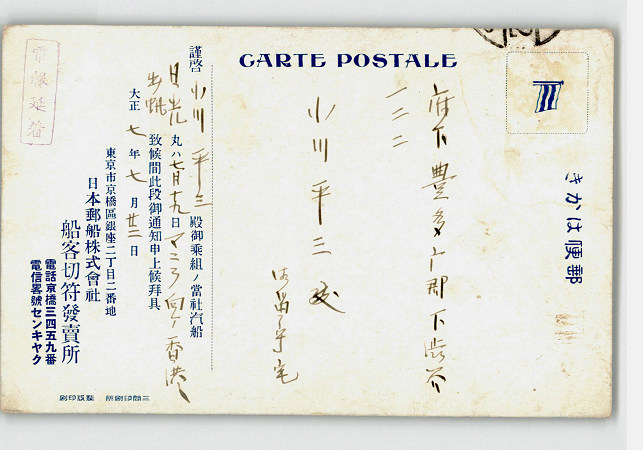 CARTE POSTALE
きかは便郵
府下豊多摩郡下渋谷
一二二
小川平三殿
留守宅
電報延着
謹啓小川平三殿御乗組ノ當社汽船
日光丸ハ七月十九日マニラ向ケ香港
出帆致候間此段御通知申上候拜具
大正七年七月廿三日
東京市京橋區銀座二丁目二番地
日本郵船株式會社
船客切符發賣所
電話京橋三四五九番
電信畧號センキヤク
三間印刷所